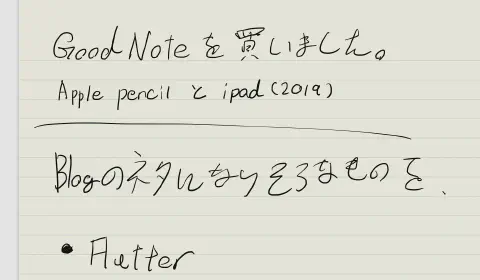 Good Noteを買いました。
Apple pencil と ipad (2019)
Blogのネタになりそうなものを、
• Flutter